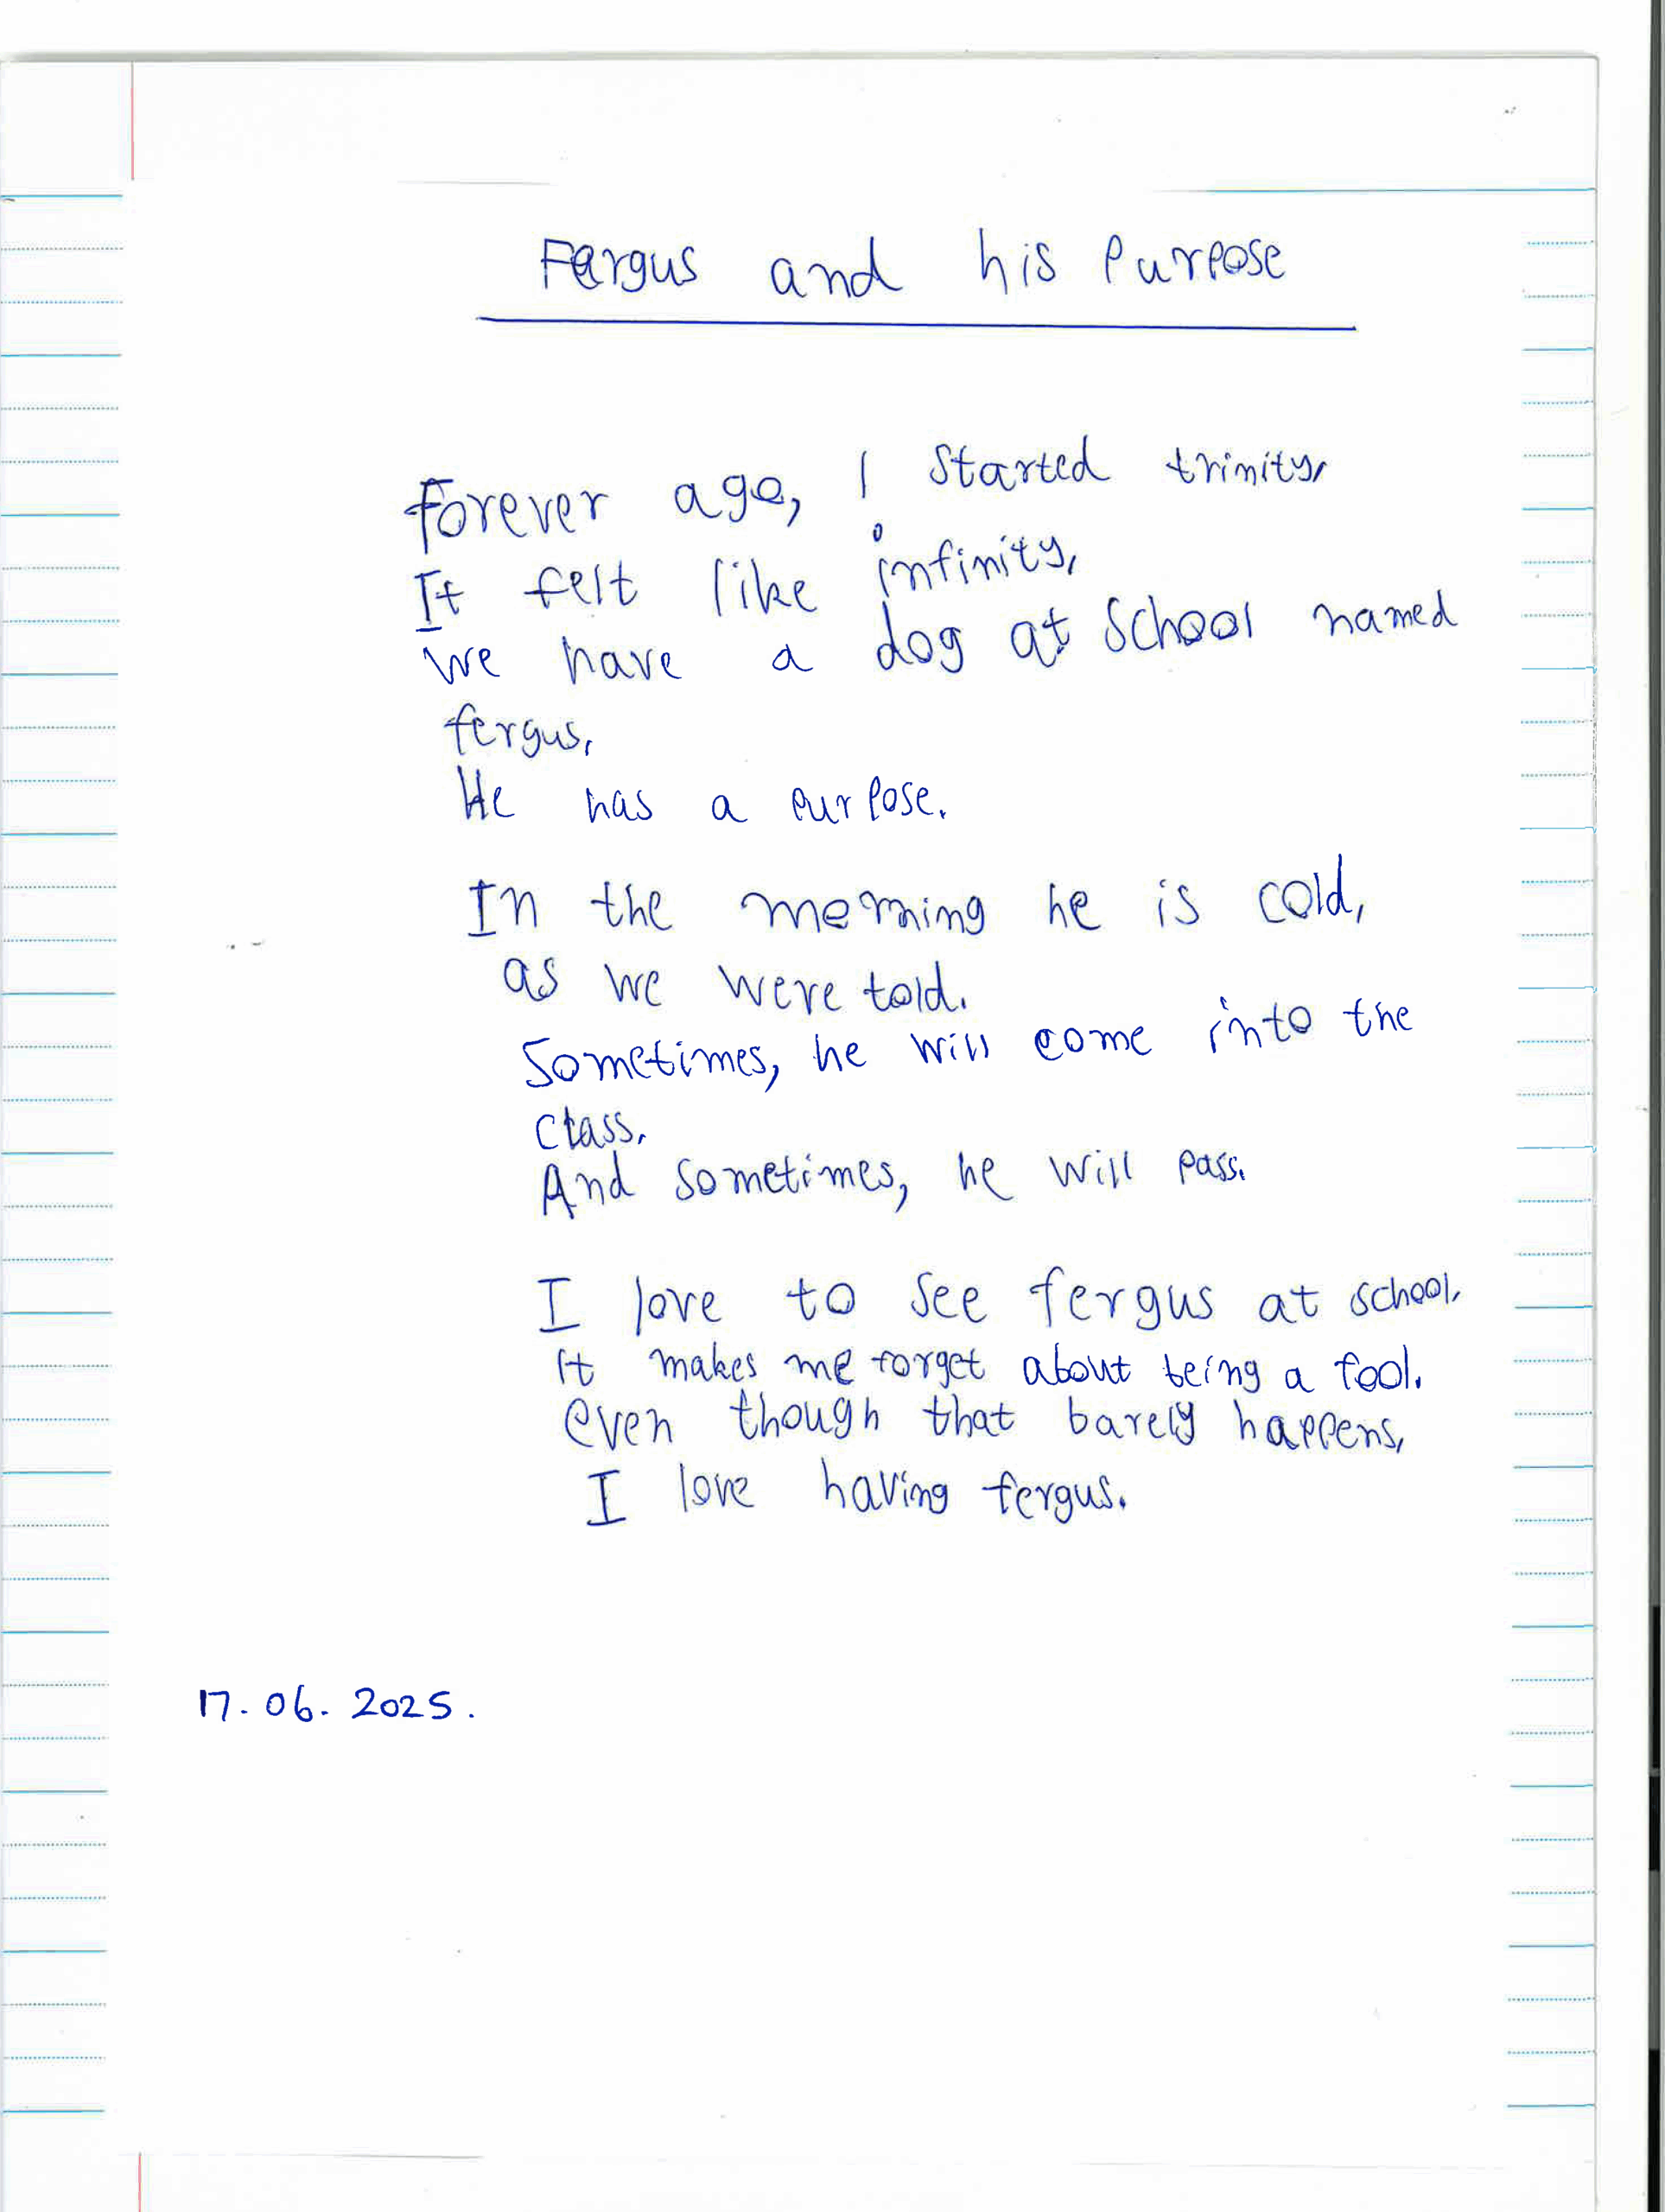 Fergus and his Purpose
Forever ago, I started trinity,
It felt like infinity,
We have a dog at School named
fergus,
He has a purpose.
In the morning he is cold,
as we were told.
Sometimes, he will come into the
class,
And sometimes, he will pass.
I love to see fergus at school.
It makes me forget about being a fool.
even though that barely happens,
I love having fergus.
17.06.2025.